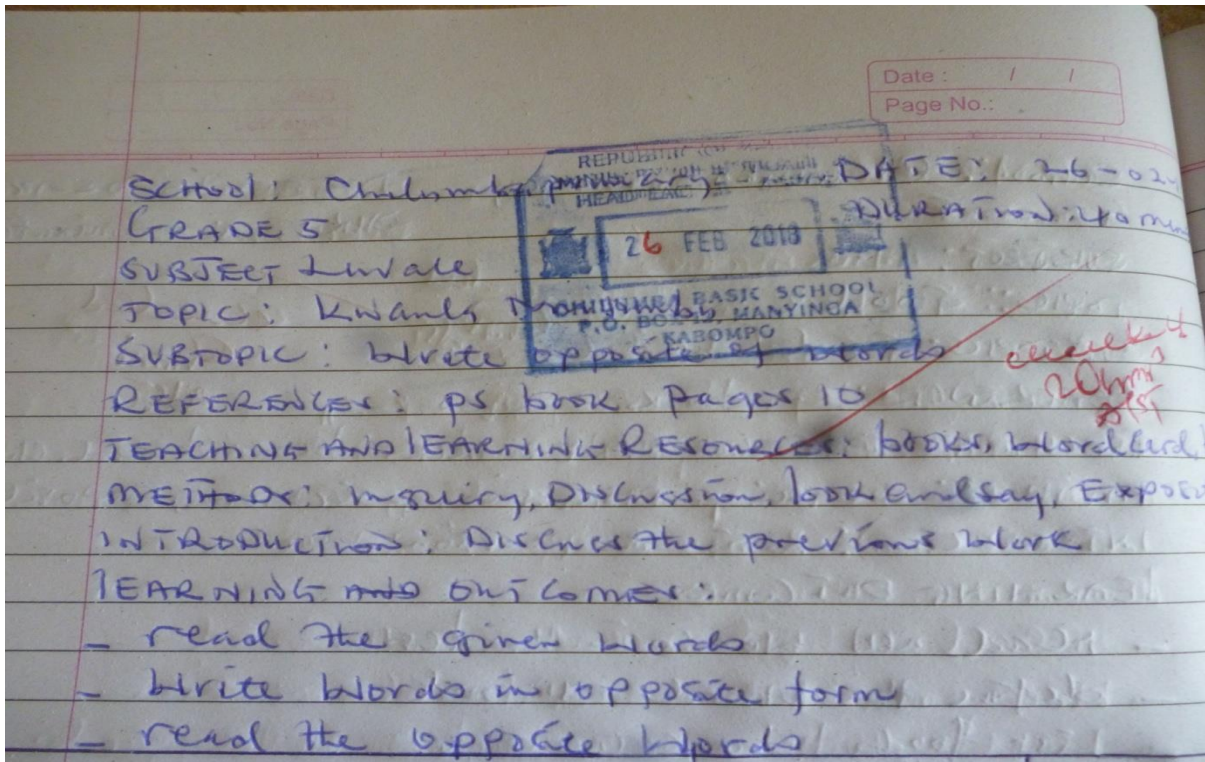 Date : / /
Page No.:
REPUBLIC
HEADTEACHER
26 FEB 2018
BASIC SCHOOL
P.O. BOX MANYINGA
KABOMPO
SCHOOL: DATE: 26-02-
GRADE 5 DURATION: 40 min
SUBJECT Luvale
TOPIC:
SUBTOPIC: Write opposite of words
REFERENCES: ps book pages 10
TEACHING AND LEARNING RESOURCES: books, word card
METHODS: inquiry, Discussion, look and say, Expos
INTRODUCTION: Discuss the previous work
LEARNING AND OUTCOMES:
- read the given words
- Write words in opposite form
- read the opposite words